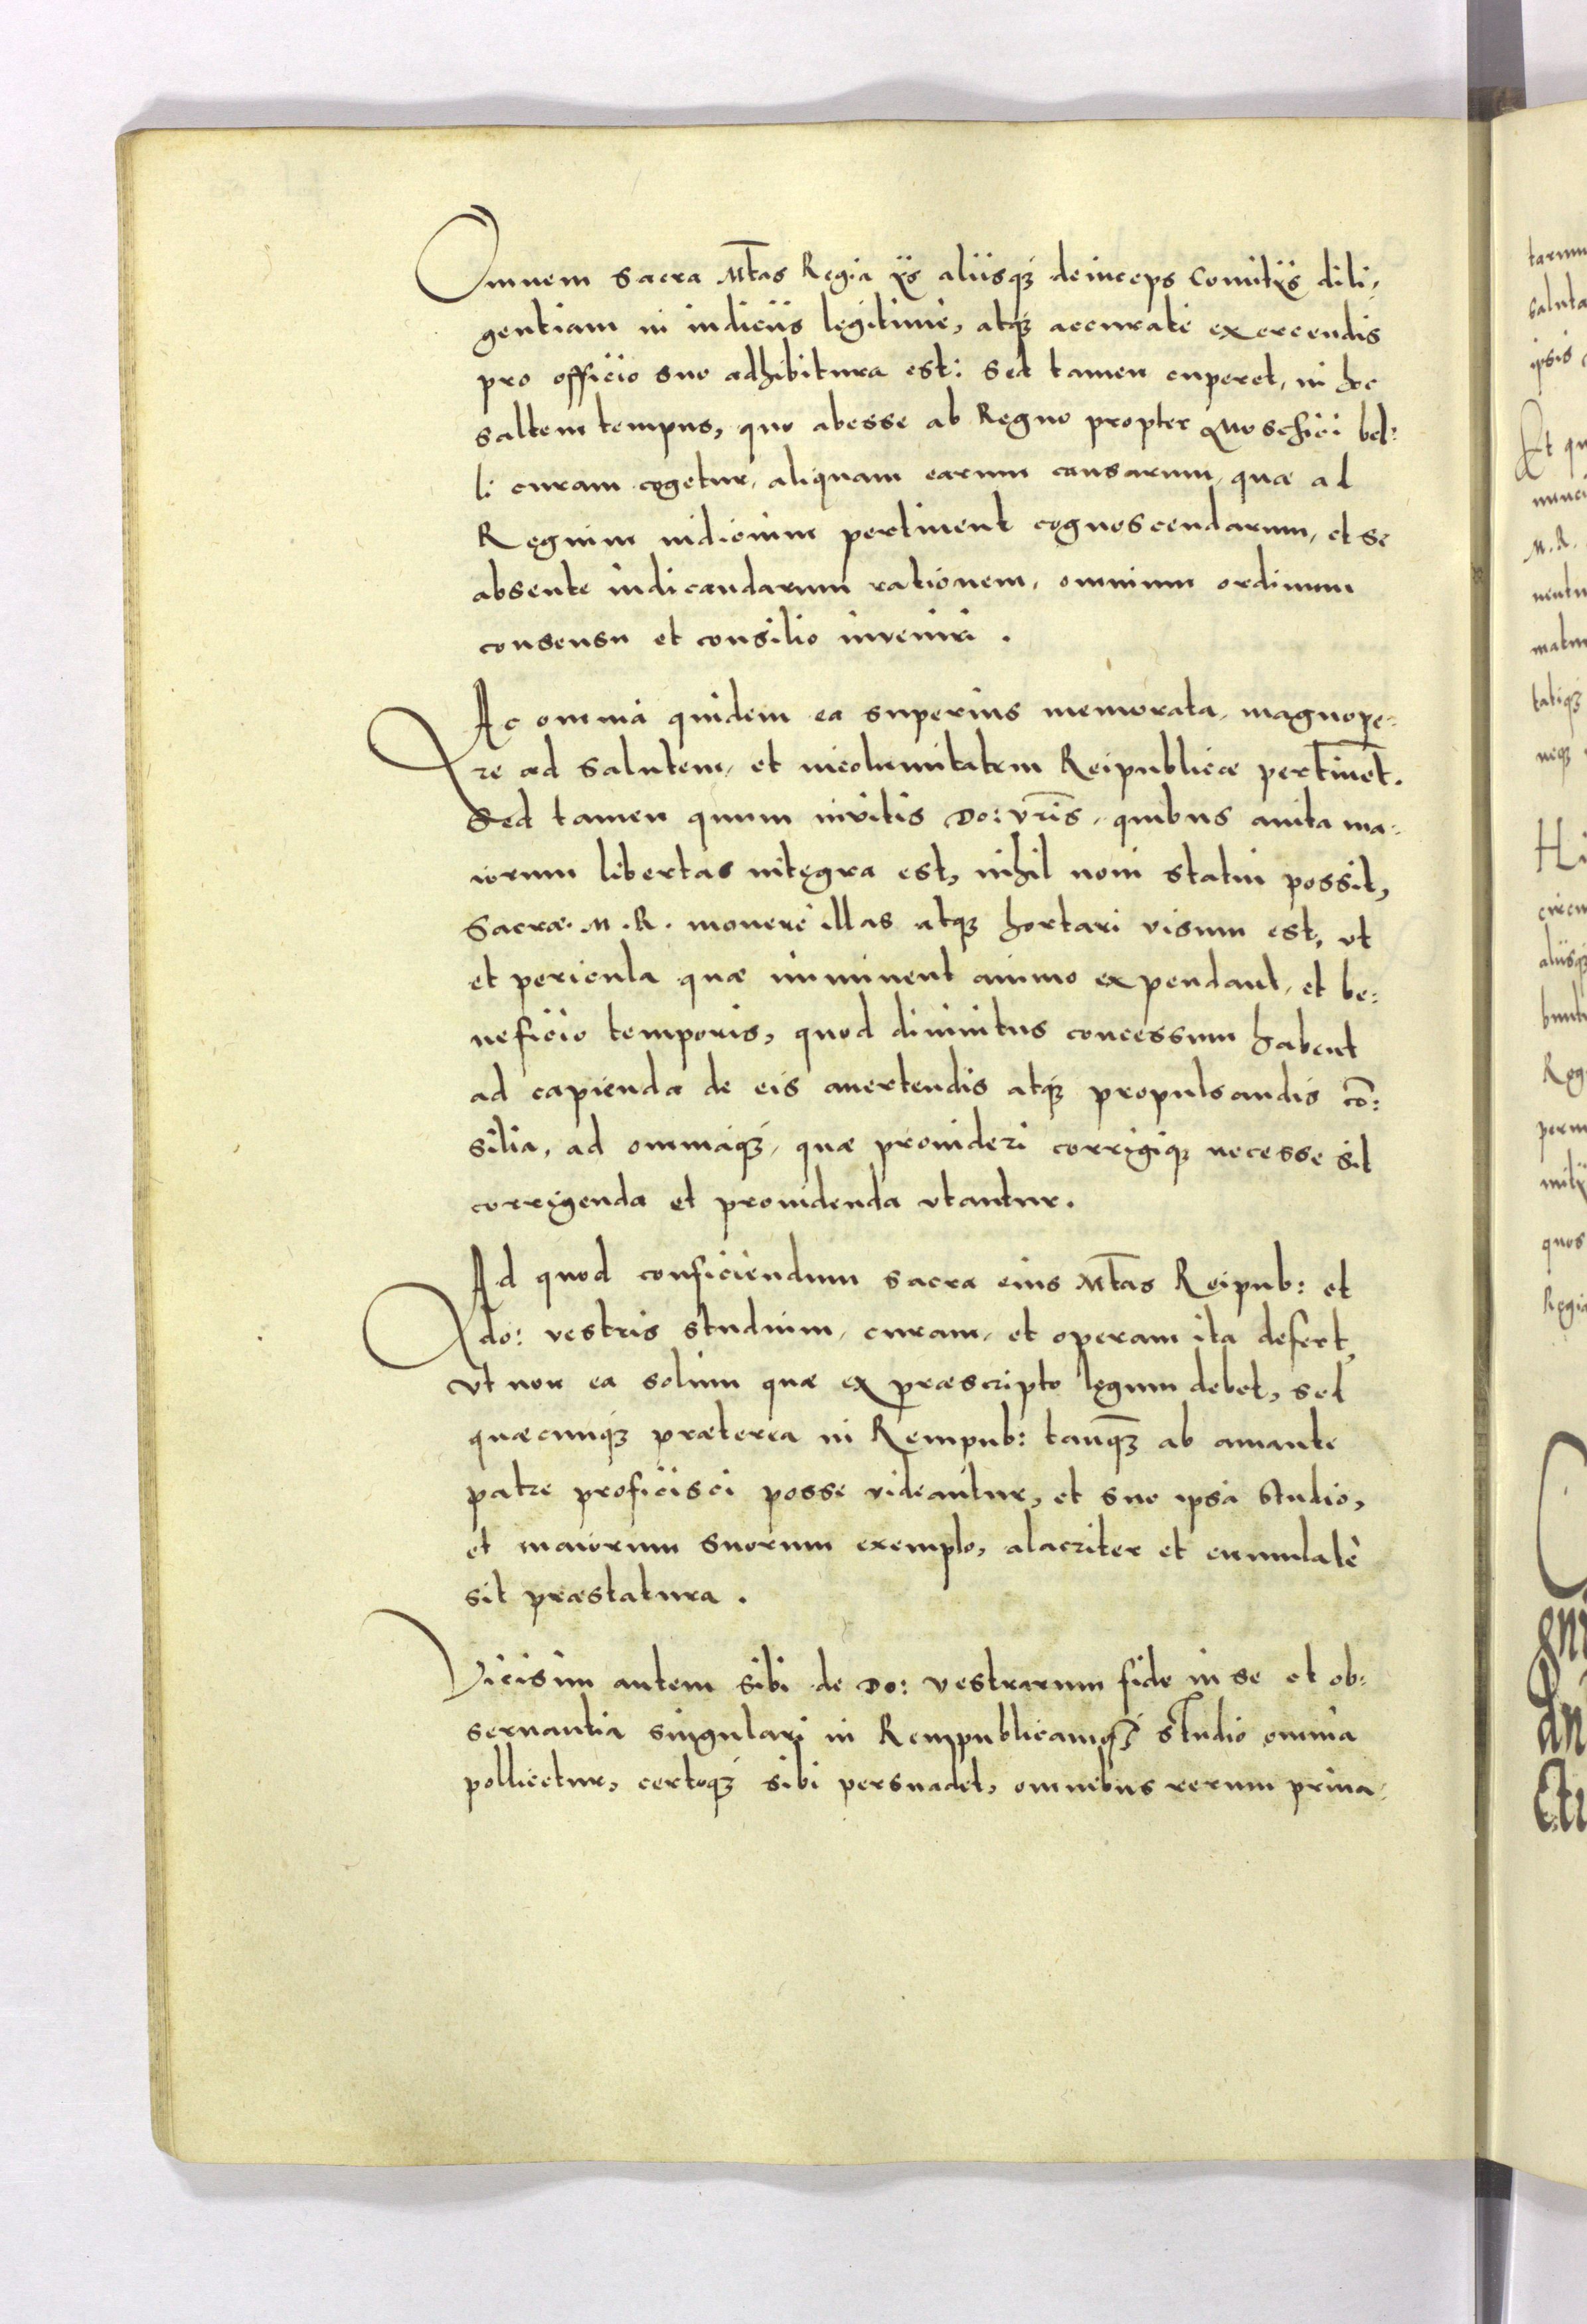 Omnem sacra M̅tas Regia ijs alijsq́ꝫ deinceps Comitijs dili-
gentiam in iudiciis legitimè, atq́ꝫ accurate exercendis
pro officio suo adhibitura est: Sed tamen cuperet, in hoc
saltem tempus, quo abesse ab Regno propter Moschici bel:
li curam cogetur, aliquam earum causarum, quae ad
Regium iudicium pertinent cognoscendarum, et se
absente iudicandarum rationem, omnium ordinum
consensu et consilio inveniri.
Ac omnia quidem ea superius memorata, magnope-
re ad salutem, et incolumitatem Reipublicae pertine̅t.
Sed tamen quum invitis Do: vr̅is, quibus auita ma-
iorum libertas integra est, nihil noui statui possit,
Sacrae. M. R. monere illas atqꝫ hortari visum est, vt
et pericula quae imminent animo expendant, et be:
neficio temporis, quod diuinitus concessum habent
ad capienda de eis auertendis atq́ꝫ propulsandis co̅:
silia, ad omniaq́ꝫ, quae prouideri corrigiqꝫ necesse sit
corrigenda et prouidenda vtantur.
Ad quod conficiendum sacra eius M̅tas Reipub: et
do: vestris studium, curam, et operam ita defert,
vt non ea solum quae ex praescripto legum debet, sed
quaecunqꝫ praeterea in Rempub: tanq̅ꝫ ab amante
patre proficisci posse videantur, et suo ipsa studio,
et maiorum suorum exemplo, alacriter et cumulatè
sit praestatura.
Vicisim autem sibi de Do: vestrarum fide in se et ob:
seruantia singulari in Rempublicamq́ꝫ studio omnia
pollicetur, certoq́ꝫ sibi persuadet, omnibus rerum priua-